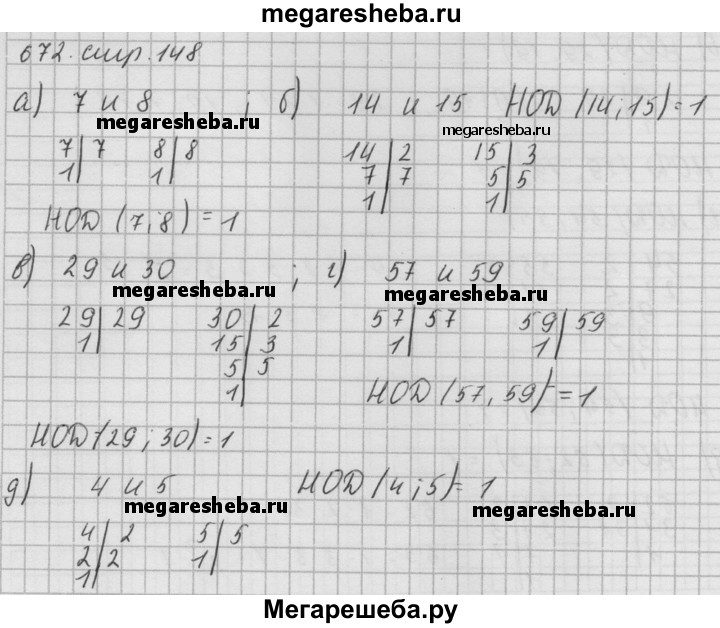 megaresheba.ru
672. стр. 148
а) 7 и 8 ; б) 14 и 15 НОД (14; 15) = 1
megaresheba.ru megaresheba.ru
7 | 7 8 | 8 14 | 2 15 | 3
1 | 1 | 7 | 7 5 | 5
1 | 1 |
НОД (7; 8) = 1
в) 29 и 30 ; г) 57 и 59
megaresheba.ru megaresheba.ru
29 | 29 30 | 2 57 | 57 59 | 59
1 | 15 | 3 1 | 1 |
5 | 5
1 |
НОД (57, 59) = 1
НОД (29; 30) = 1
д) 4 и 5 НОД (4; 5) = 1
megaresheba.ru megaresheba.ru
4 | 2 5 | 5
2 | 2 1 |
1 |
Мегарешеба.ру